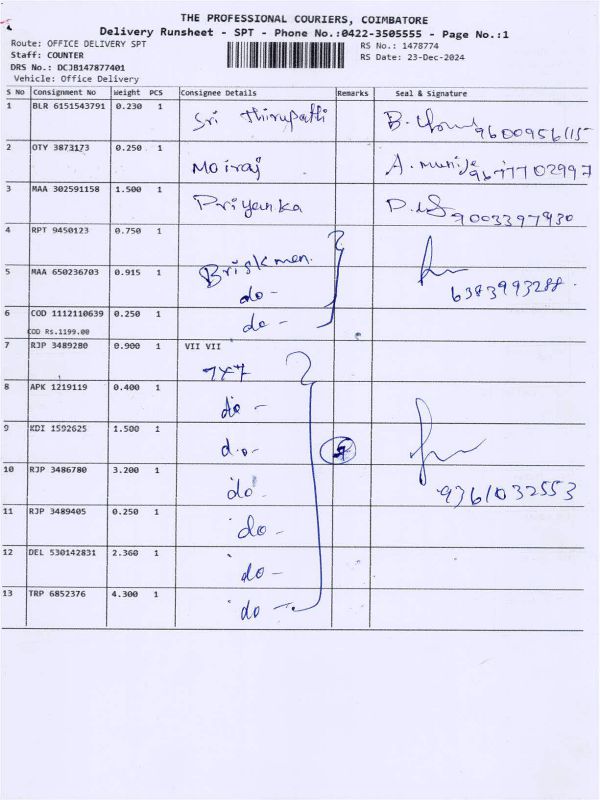 THE PROFESSIONAL COURIERS, COIMBATORE
Delivery Runsheet - SPT - Phone No.:0422-3505555 - Page No.:1
Route: OFFICE DELIVERY SPT
Staff: COUNTER
DRS No.: DCJB147877401
Vehicle: Office Delivery
RS No.: 1478774
RS Date: 23-Dec-2024
S No Consignment No Weight PCS Consignee Details Remarks Seal & Signature
1 BLR 6151543791 0.230 1 Sri Thirupathi B. 9600956115
2 OTY 3873173 0.250 1 Moiraj A. 9677702997
3 MAA 302591158 1.500 1 Priyanka 9003397930
4 RPT 9450123 0.750 1 Briskmen.
5 MAA 650236703 0.915 1 do - 6383993288.
6 COD 1112110639 0.250 1 do -
COD Rs.1199.00
7 RJP 3489280 0.900 1 VII VII
7x7
8 APK 1219119 0.400 1 do -
9 KDI 1592625 1.500 1 do - 7
10 RJP 3486780 3.200 1 do 9361032553
11 RJP 3489405 0.250 1 do -
12 DEL 530142831 2.360 1 do -
13 TRP 6852376 4.300 1 do -